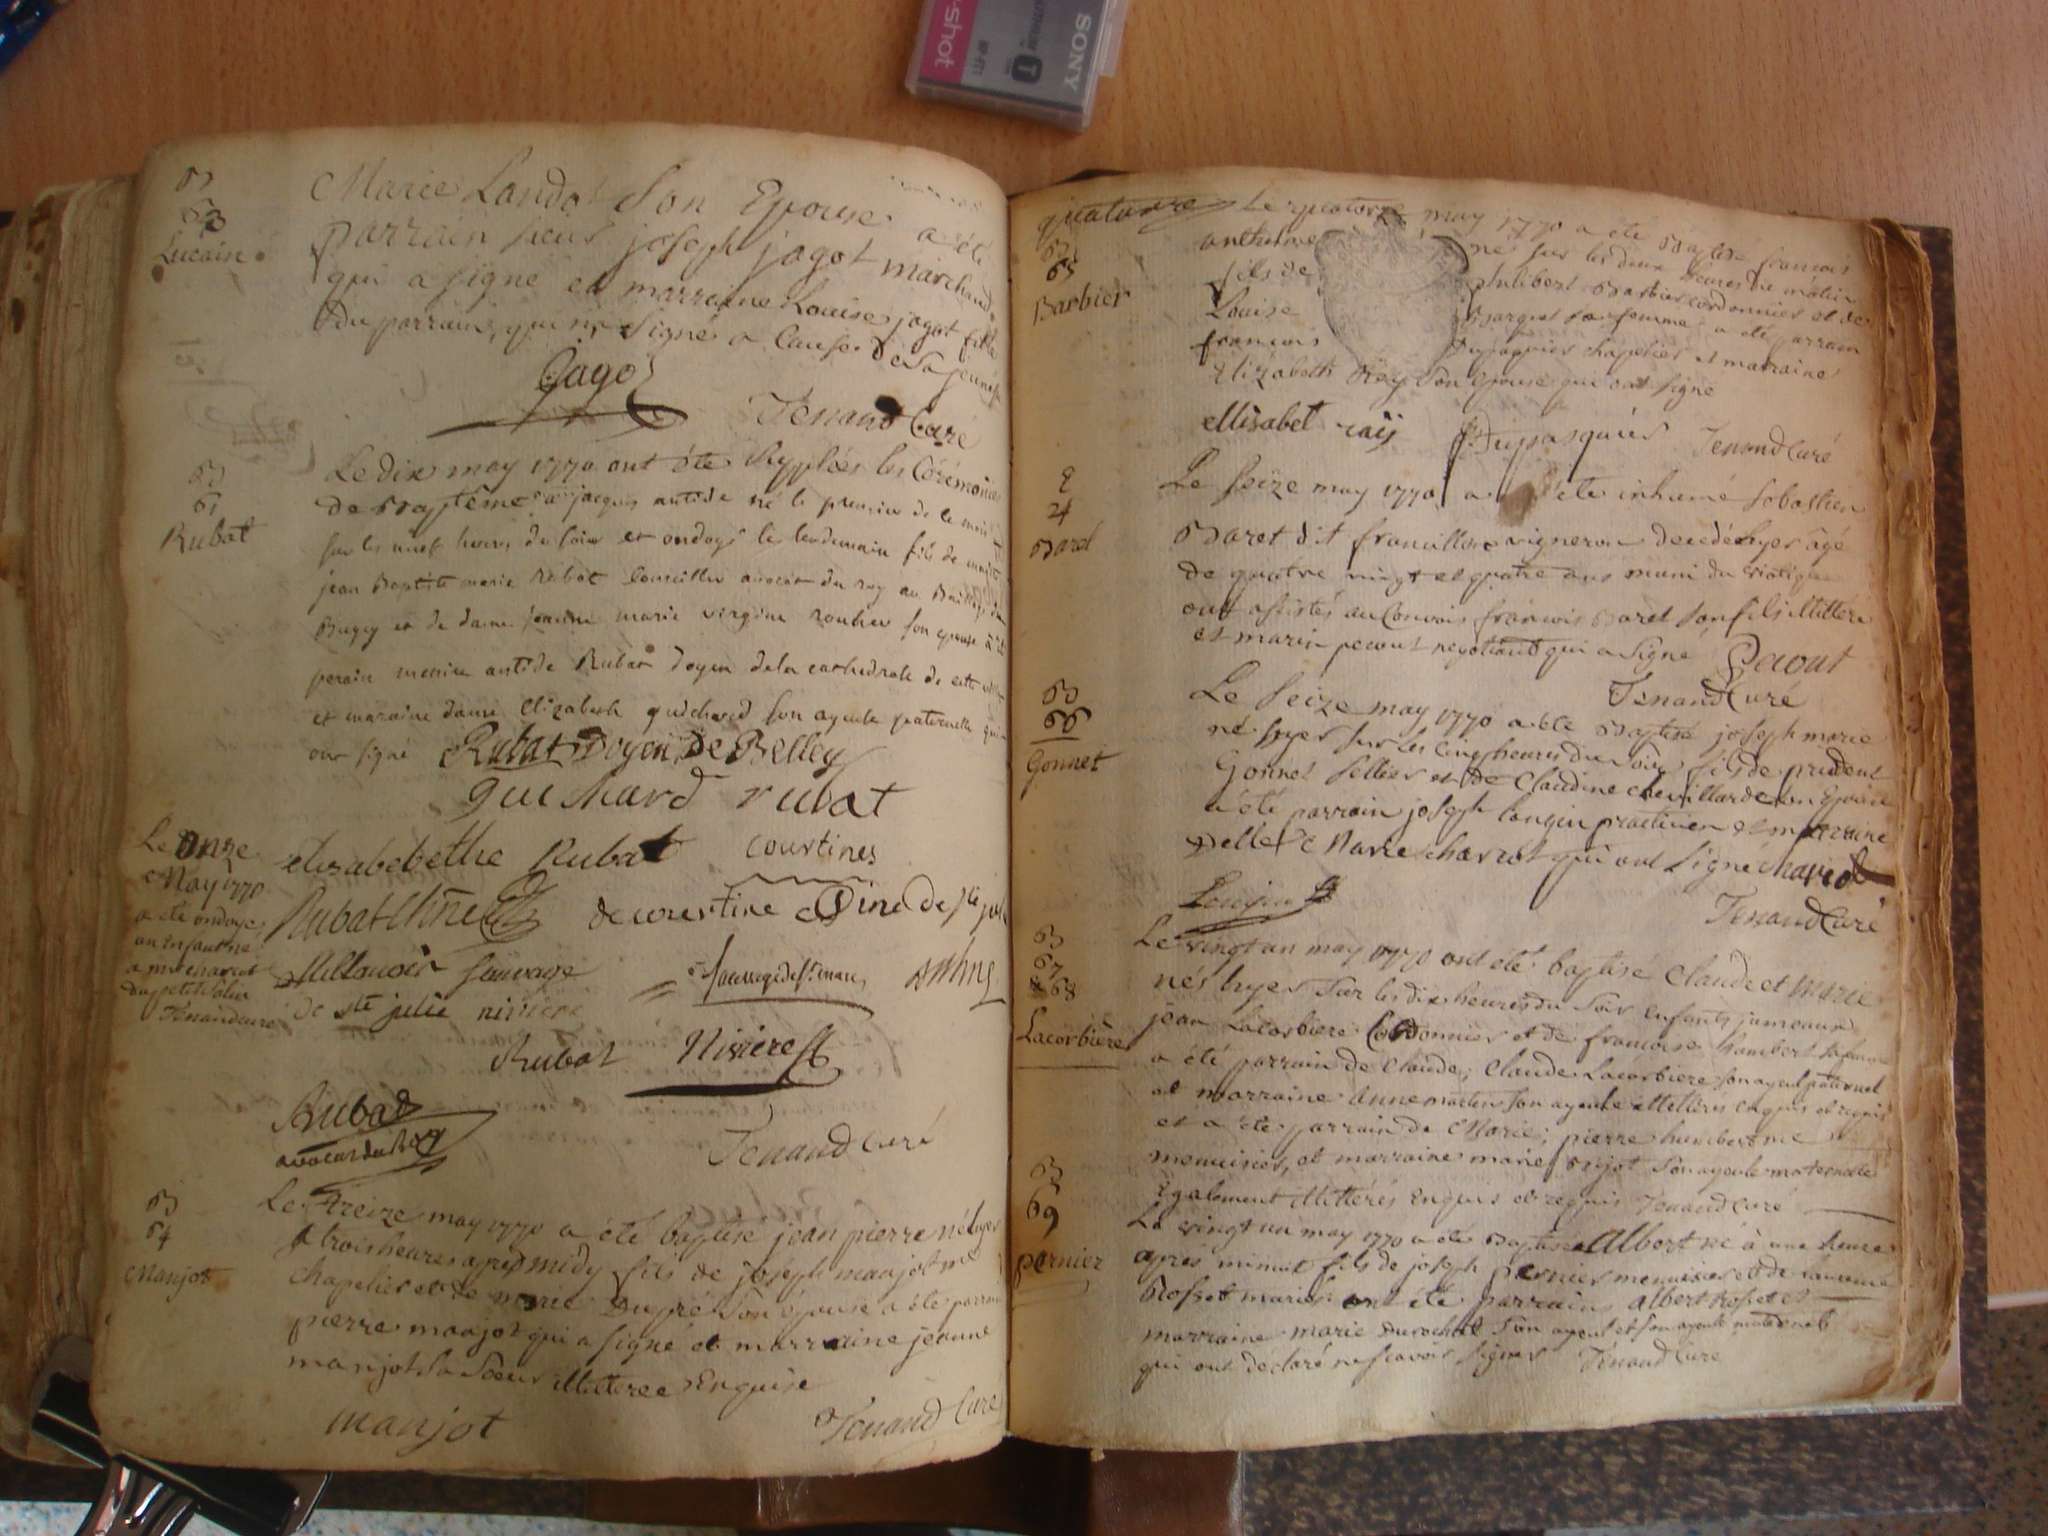 SONY
B
63
Lucain
Marie Landot Son Epouse a été
parrain sieur joseph jagot marchand
qui a signé et marraine Louise jagot fille
du parrain, qui n'a Signé a Cause de Sa jeunesse
Jagot
Tenand Curé
B
Rubat
Le dix may 1770 ont été Supplées les Cérémonies
de Baptême a jacques antide né le premier de ce mois
sur les neuf heures du soir et ondoyé le lendemain fils de maitre
jean Baptiste marie Rubat Conseiller avocat du roy au Bailliage du
Bugey et de dame jeanne marie virgine roubier son epouse a été
perain messire antide Rubat doyen de la cathedrale de cette ville
et maraine dame Elizabeth guichard son ayeule paternelle qui
ont signé Rubat Doyen de Belley
guichard rubat
elisabebethe Rubat courtines
de courtine
Sauvage
de ste julie niviere
Rubat Niviere
Rubat
avocat du Roy
Tenand Curé
Le onze
May 1770
a été ondoyé
un Enfant né
a mr charcot
du petit
Tenand curé
B
64
Manjot
Le treize may 1770 a été baptisé jean pierre né hyer
a trois heures apres midy fils de joseph manjot me
chapelier et de marie Dupré Son épouse a été parrain
pierre manjot qui a signé et marraine jeanne
manjot Sa Soeur illiteree Enquise
manjot
Tenand Curé
quatorze Le quatorze may 1770 a été Baptisé francois
B
65
Barbier
anthelme né sur les deux heures du matin
fils de philibert Barbier cordonnier et de
Louise Barquet sa femme a été parrain
francois Dupasquier chapelier et marraine
Elizabeth Rey Son epouse qui ont signé
ellisabet raij Dupasquier Tenand Curé
24
Baret
Le Seize may 1770 a été inhumé Sebastien
Baret dit francillon vigneron decedé hyer âgé
de quatre vingt et quatre ans muni du viatique
ont assistés au Convois francois Baret son fils illiteré
et marin pecout negotiant qui a Signé Pecout
Tenand Curé
B
66
Gonnet
Le Seize may 1770 a été Baptisé joseph marie
né hyer sur les cinq heures du Soir fils de prudent
Gonnet Sellier et de Claudine chevillard son Epouse
a été parrain joseph Longin practicien et marraine
Delle Marie charcot qui ont signé charcot
Longin
Tenand Curé
B
67
&68
Lacorbiere
Le vingt un may 1770 ont été baptisé Claude et Marie
nés hyer Sur les dix heures du Soir Enfants jumeaux
jean Lacorbiere Cordonnier et de francoise humbert sa femme
a été parrain de Claude, Claude Lacorbiere son ayeul paternel
et marraine Anne martin son ayeule illiterés enquis et requis
et a été parrain de Marie; pierre humbert me
menuisier, et marraine marie Bajot Son ayeule maternelle
Egalement illitérés Enquis et requis Tenand Curé
B
69
pernier
Le vingt un may 1770 a été Baptisé Albert né à une heure
apres minuit fils de joseph pernier menuisier et de laurence
Rosset mariés ont été parrains albert Rosset et
marraine marie Durochat Son ayeul et Son ayeule maternels
qui ont declaré ne scavoir signer Tenand Curé